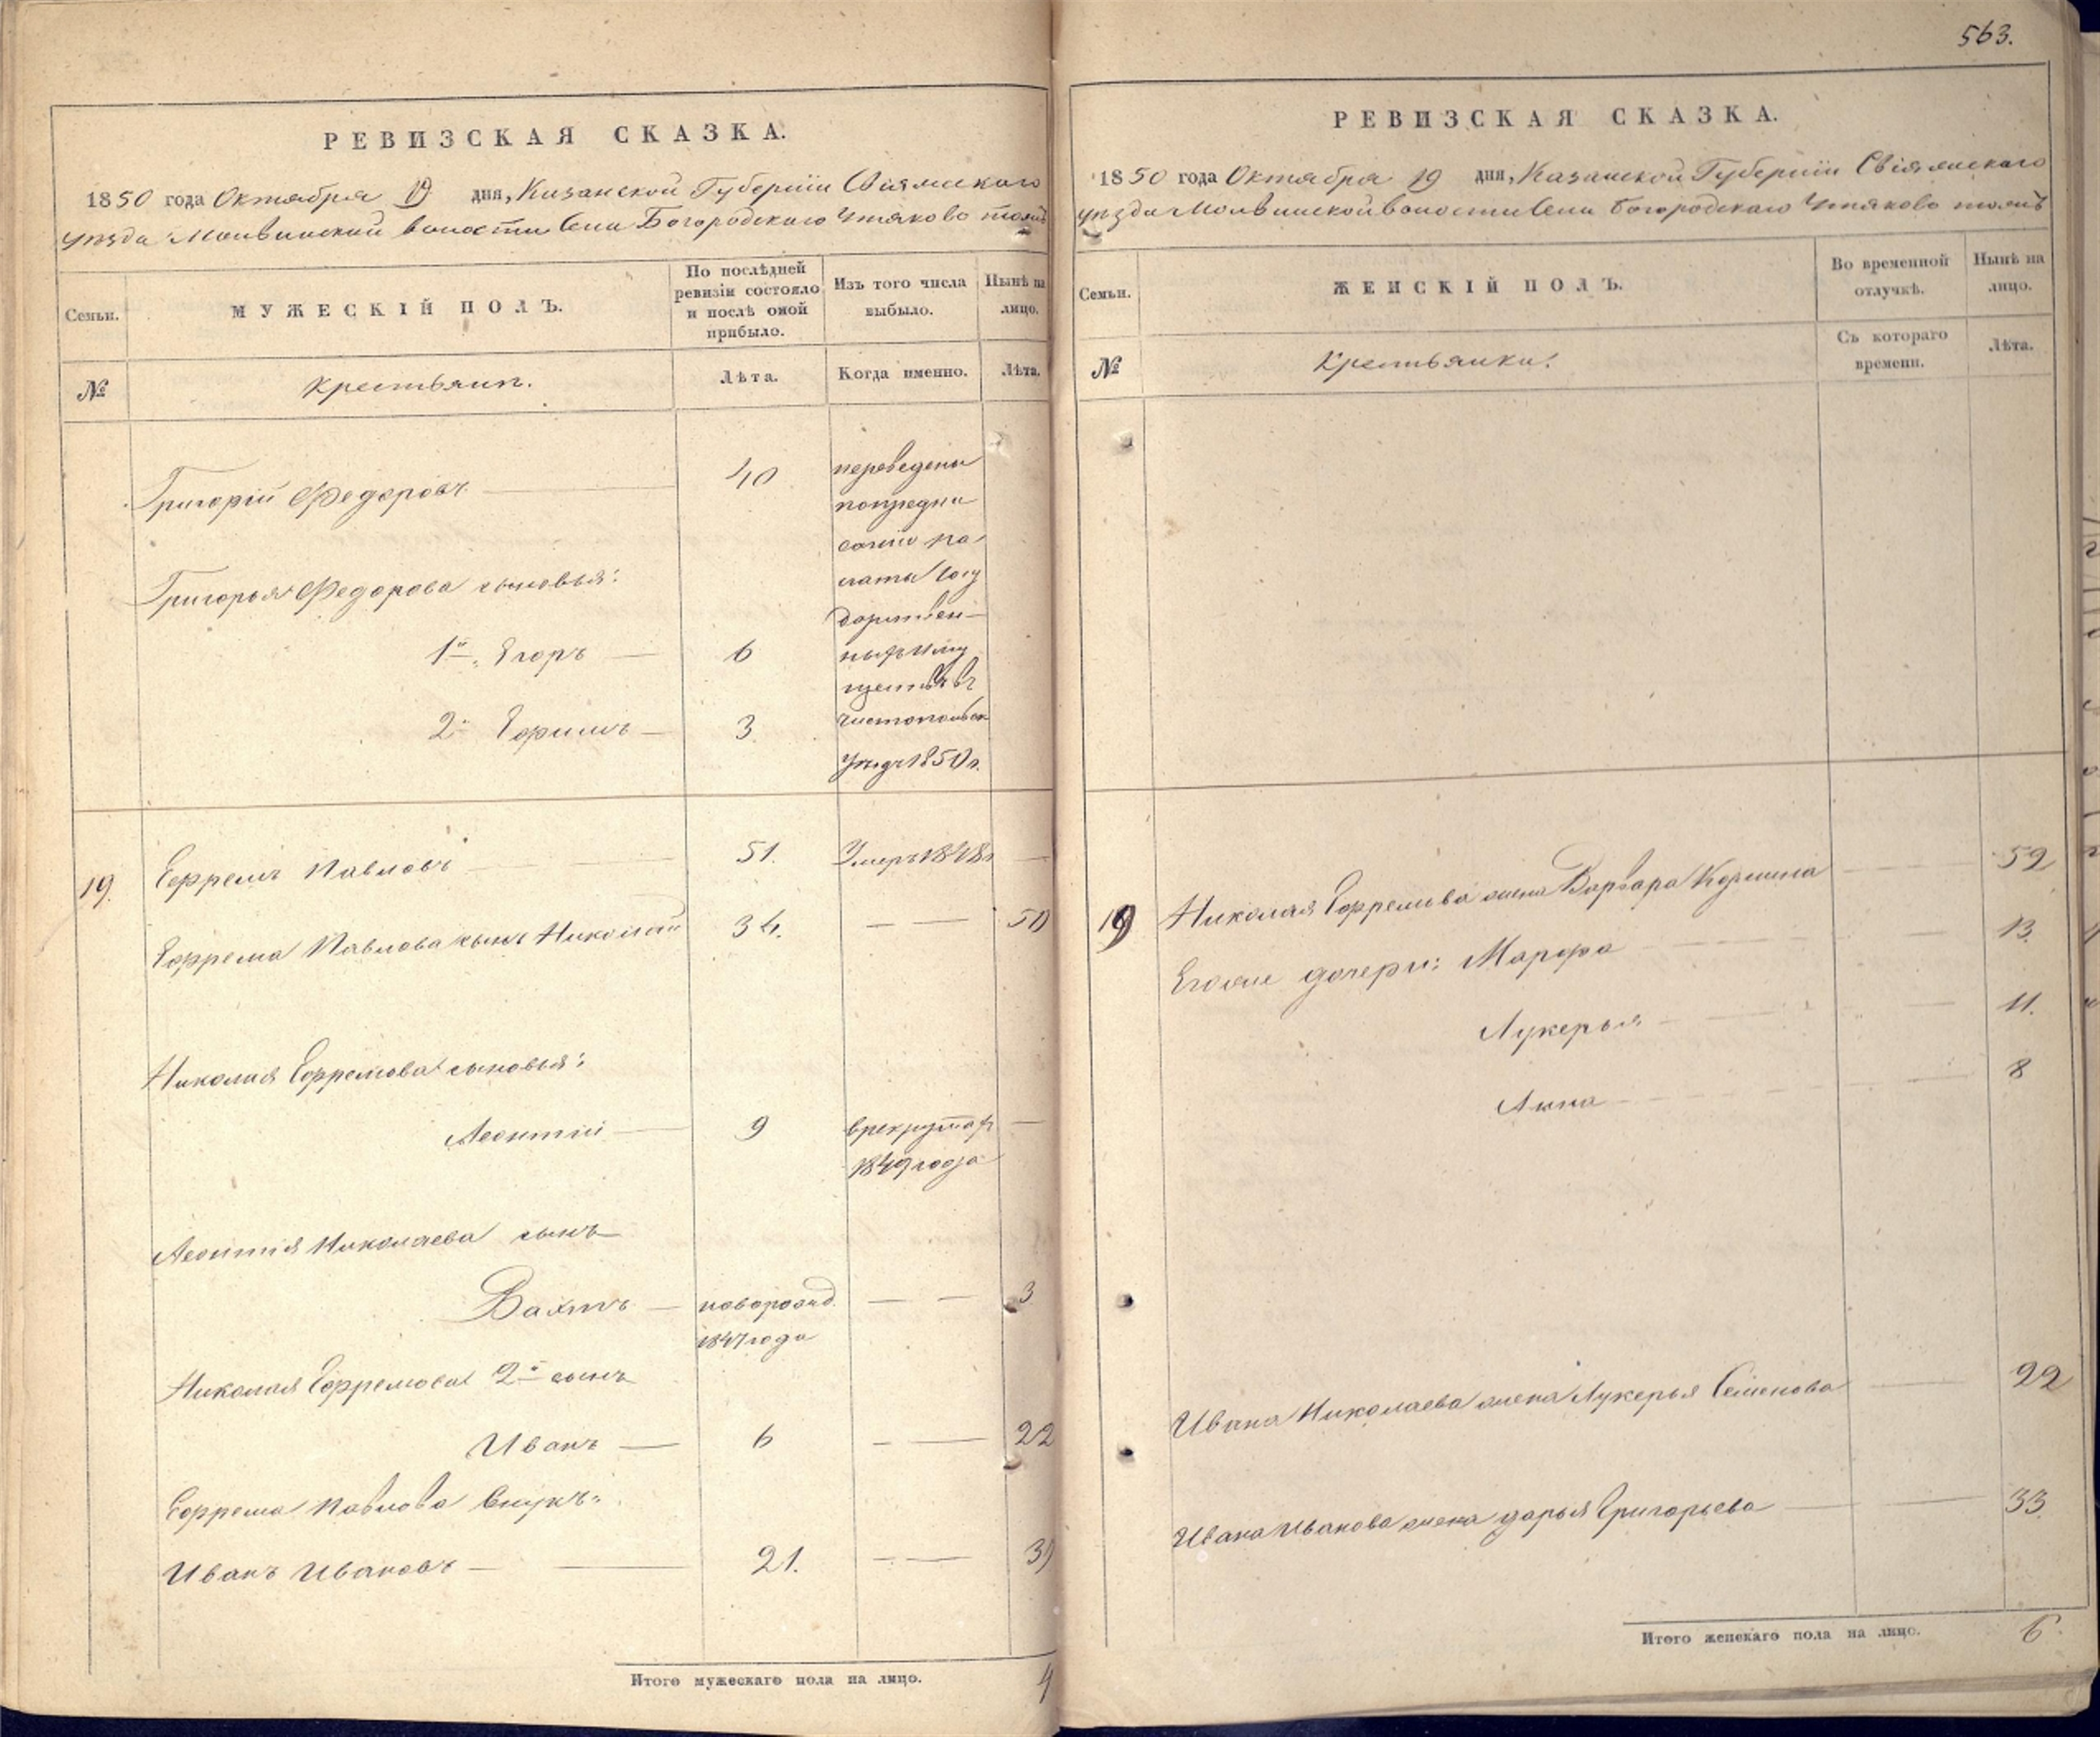 563.
РЕВИЗСКАЯ СКАЗКА.
1850 года Октября 19 дня, Казанской Губерніи Свіяжскаго
уѣзда Молвинской волости Села Богородскаго Утяково тожъ
Семьи.
МУЖЕСКІЙ ПОЛЪ.
По послѣдней
ревизіи состояло
и послѣ оной
прибыло.
Изъ того числа
выбыло.
Нынѣ на
лицо.
№
Крестьянъ.
Лѣта.
Когда именно.
Лѣта.
Григорій Федоровъ 40
переведены
по предпи
санію па
латы Госу
дарствен
ныхъ Иму
ществъ въ
Чистопольск
уѣздъ 1850 г.
Григорья Федорова сыновья:
1й Егоръ 6
2й Ефимъ 3
19. Ефремъ Павловъ 51. Умеръ 1848 г
Ефрема Павлова сынъ Николай 34. 50
Николая Ефремова сыновья:
Леонтій 9 в рекрутах
1849 года
Леонтія Николаева сынъ
новорожд. 3
1847 года
Николая Ефремова 2й сынъ
Иванъ 6 22
Ефрема Павлова Внукъ:
Иванъ Ивановъ 21.
Итого мужескаго пола на лицо. 4
РЕВИЗСКАЯ СКАЗКА.
1850 года Октября 19 дня, Казанской Губерніи Свіяжскаго
уѣзда Молвинской волости Села Богородскаго Утяково тожъ
Семьи.
ЖЕНСКІЙ ПОЛЪ.
Во временной
отлучкѣ.
Нынѣ на
лицо.
№
Крестьянки.
Съ котораго
времени.
Лѣта.
19 Николая Ефремова жена Варвара Козмина 52
Его же дочери: Марфа 13.
Лукерья 11.
Анна 8
Ивана Николаева жена Лукерья Семенова 22
Ивана Иванова жена Дарья Григорьева 33.
Итого женскаго пола на лицо. 6